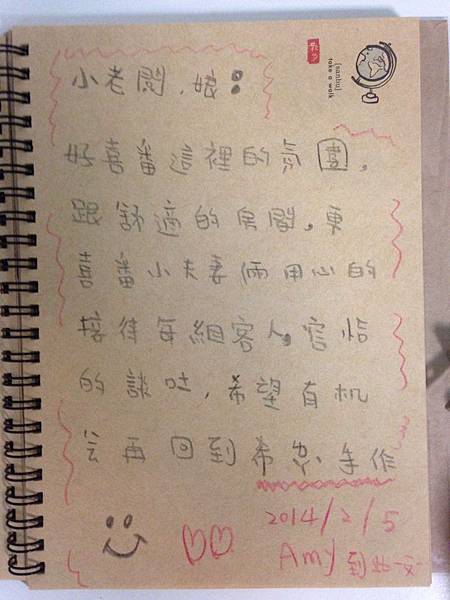 [sanbu]
take a walk
小老闆,娘:
好喜番這裡的氛圍,
跟舒適的房間。更
喜番小夫妻倆用心的
接待每組客人。官恰
的談吐,希望有机
会再回到希忠手作
2014/2/5
Amy 到此一文